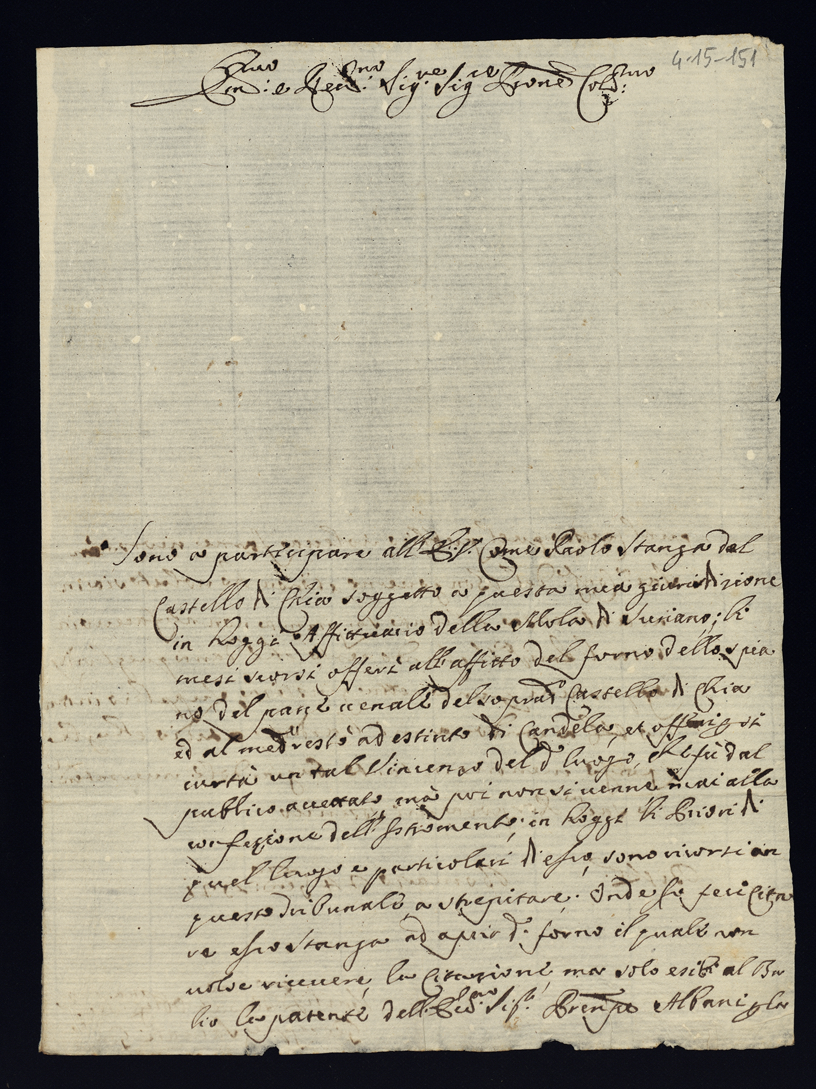 4-15-151
Em:mo e Rev:mo Sig:re Sig:re Prone Col:mo
Sono a participare all' E. V. Come Paolo Stanga del
Castello di Chia soggetto a questa mia giurisdizione
in hoggi Affittuario della Mola di Suriano; li
mesi scorsi offerì all'affitto del forno dello spia
no del pane venale del soprad.o Castello di Chia
ed al med.o restò ad estinto di Candela, et offerì
curtà un tal Vincenzo del d.o luogo, che fù dal
pubblico accettato, mà poi non si venne mai alla
confezione dell'Istromento; in hoggi li Priori di
quel luogo e particolari di esso, sono ricorsi in
questo Tribunale a strepitare. Onde lo feci Cita
re esso Stanga ad aprir d.o forno il quale non
volse ricevere la Citazione, ma solo esibì al Ba
lio la patente dell' Sig.r Prenpe Albani p la